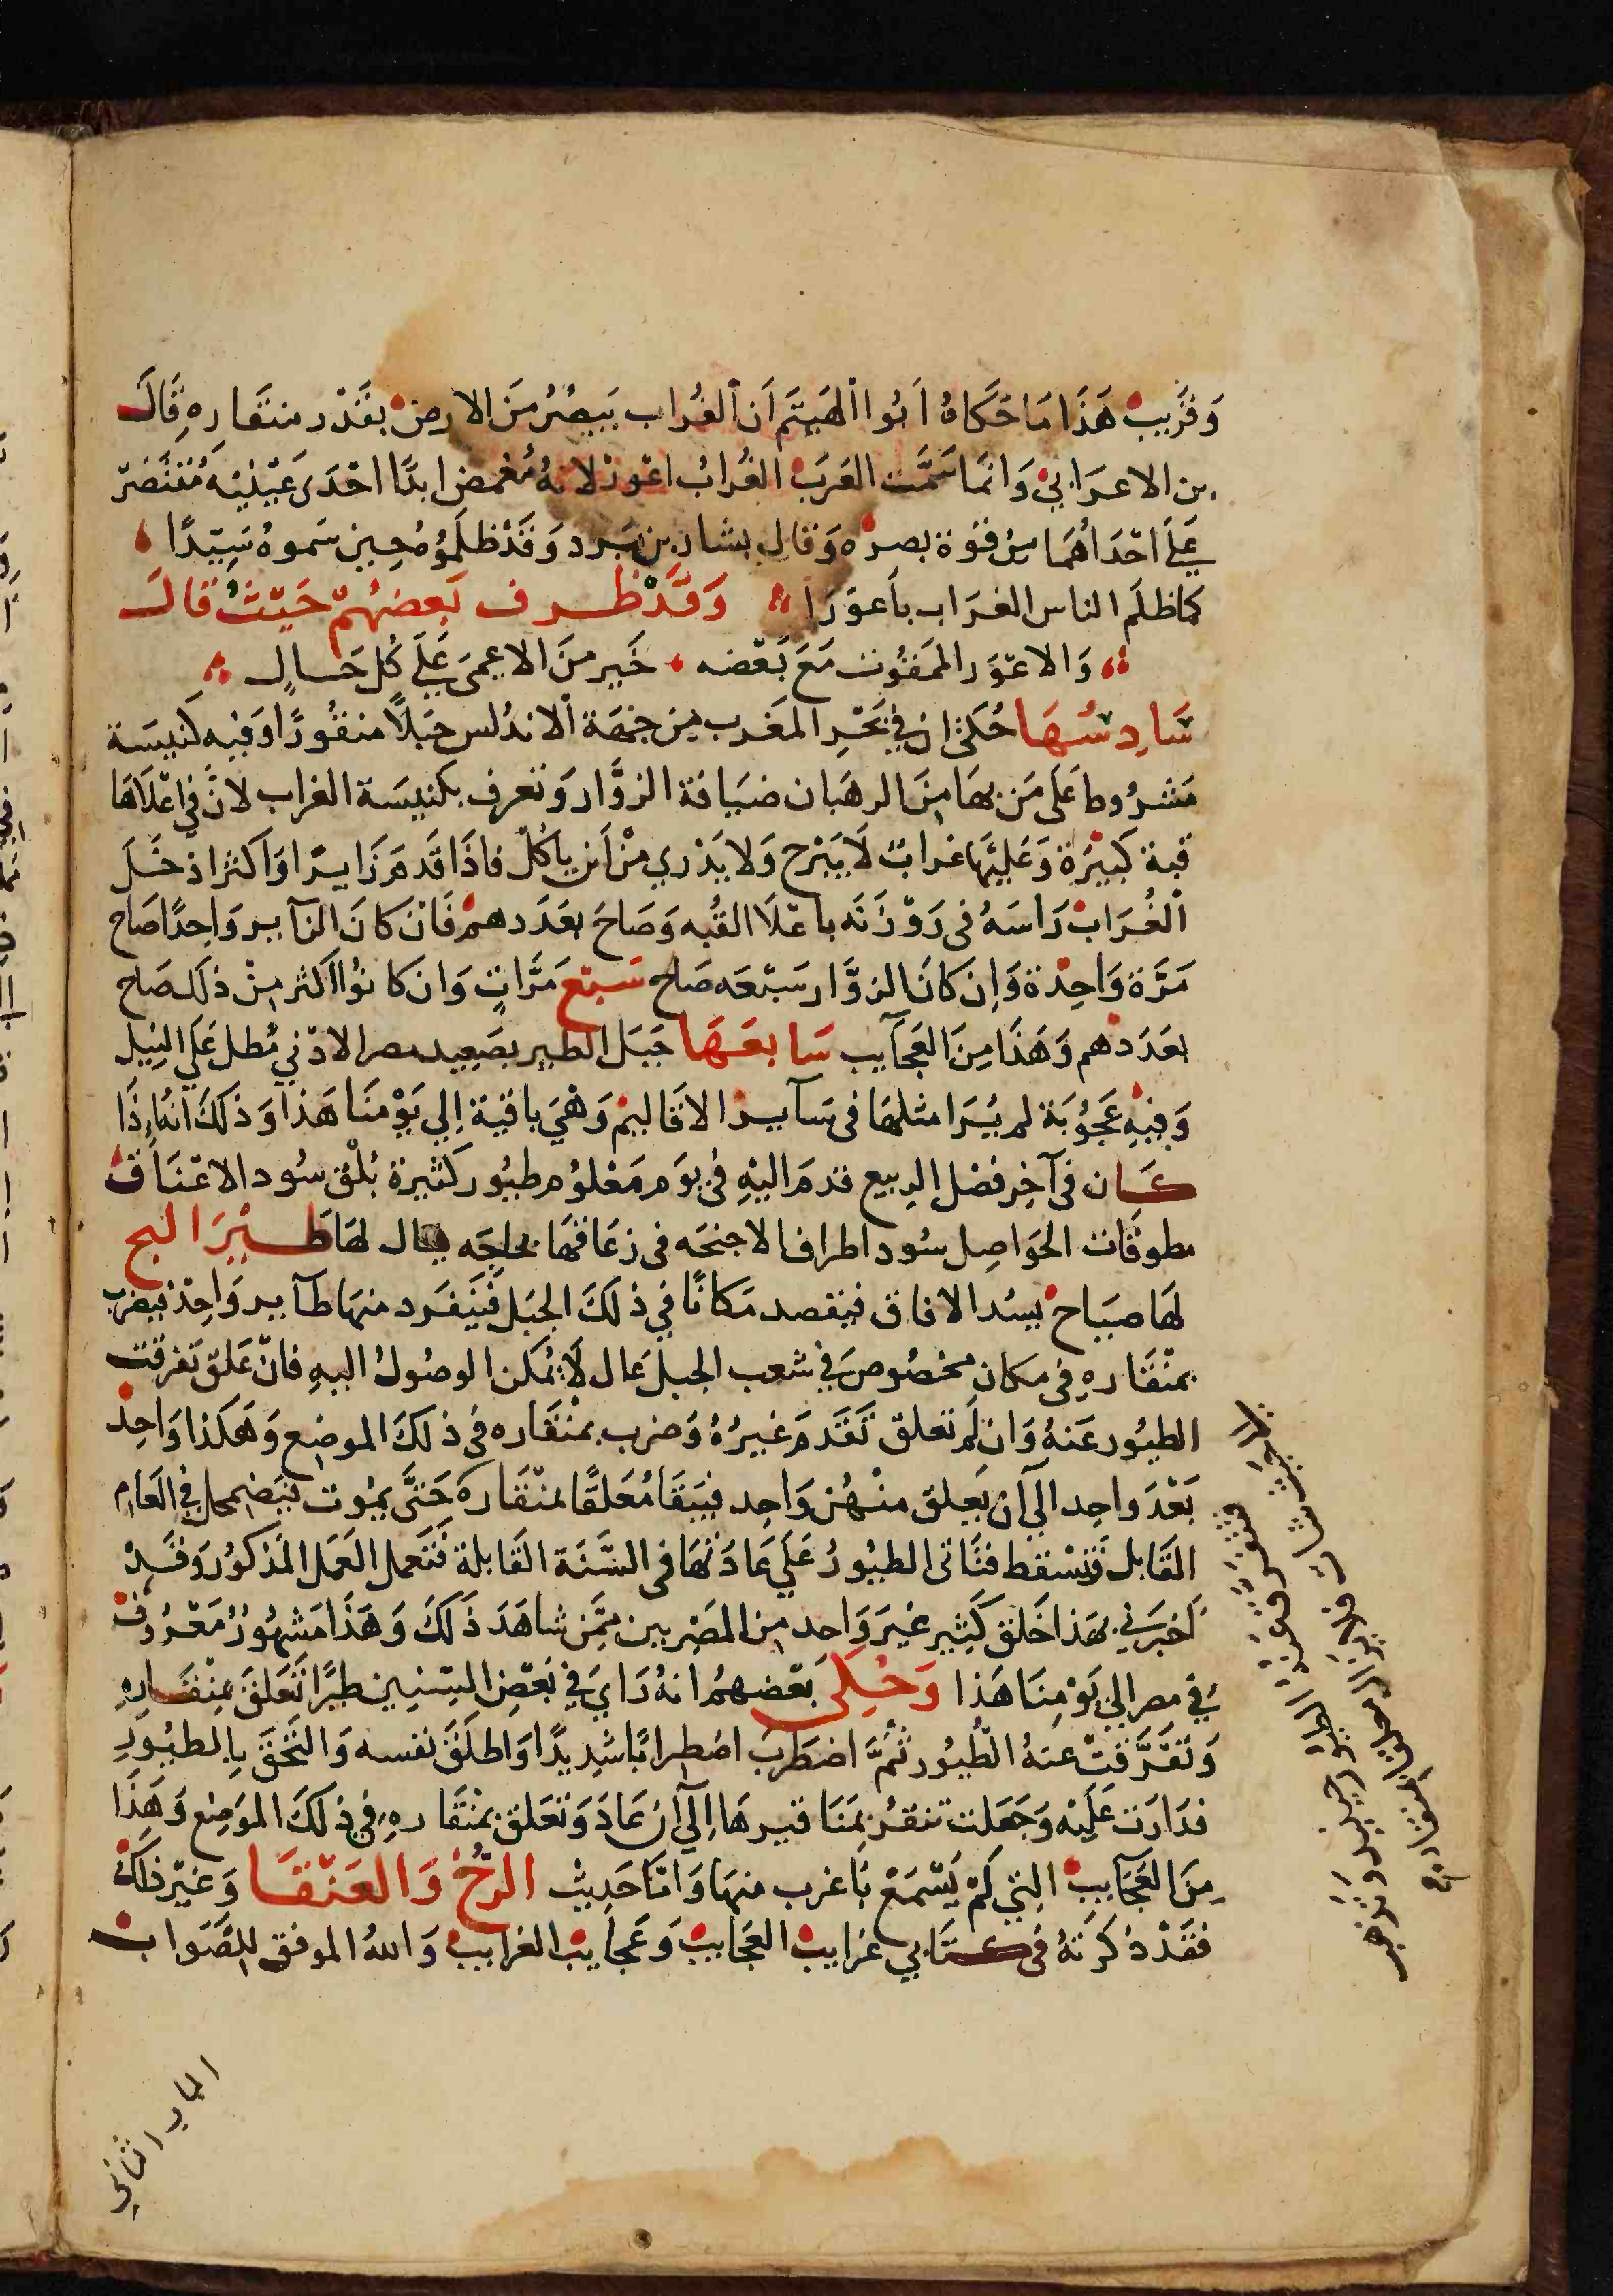 وَقَرِيبْ هَذَا مَا حَكَاهُ اَبُوا الهَيتَم اَن الغُراب يَبصُرُ مِنَ الارض بقَدْر منقَاره قَالَ
بن الاعرَابيْ وَانمَا سَمَّت العَرَبْ الغُرابُ اعْوَر لانهُ مُغمض ابدًا احْدَى عَيْنيْه مُقتَصِرْ
عَلَى احْدَاهُمَا من قوة بصره وَقال بشار بن بَرد وَقَدْ ظلَموُهُ حِين سَموهُ سَيّدًا
كما ظلَم الناس الغرَاب باَعوَرَا وَقَدْ ظرف بَعضهُمْ حَيْثُ قالَ
وَالاعْوَر الممقوُت مَعَ بَعْضه خَير منَ الاعمَى عَلَى كُل حَالٍ
سَادِسُهَا حُكىَ ان فِي بَحْرِ المغَرب مِن جِهَة الاندُلس جَبَلاً منقُورًا وَفيه كَنيسَة
مَشرُوطا عَلَى مَن بهَا مِنَ الرهبَان ضيَافة الزوَّار وَتعرف بكنيسَة الغراب لانَّ فى اعْلَاهَا
قبة كَبيْرَة وَعَليْهَا غرابٌ لَا يَبْرح وَلا يَدْري مِنْ اَين ياكلْ فاذَا قدمَ زَايرًا وَاكثر ادخَلَ
الغُرَابْ رَاسَهُ فى رَوْزَنَه باعْلَا القُبه وَصَاحَ بعَدَدهم فَانْ كانَ الزآير وَاحِدًا صَاح
مَرَّة وَاحِدَة وَاِن كانَ الزوَّار سَبْعَه صَاح سَبْع مَرَّاتٍ وَان كانوُا اكثر مِنْ ذلك صَاح
بعَدَدهم وَهَذَا مِنَ العَجَآيب سَابعَهَا جَبَل الطير بصَعِيد مصر الادْني مُطل عَلَي النِيل
وَفيْهِ عَجُوُبَة لم يُرَا مثلهَا فى سَآير الاقَاليْم وَهْيَ باقية اِلي يَوْمنَا هَذا وَذلكَ انهُ اِذَا
كَان فى آخِر فصْل الربيع قدمَ اليْهِ فى يوَم مَعْلوُم طيُور كَثيرة بُلْق سُود الاعْنَاقْ
مطوقَات الحوَاصِل سُود اطراف الاجنحَه فى زعَاقهَا بحَاحَه يقال لهَا طَيْرَ البح
لهَا صيَاحْ يسُد الافاق فيَقصد مَكانًا في ذلكَ الجبَل فَيَنفَرد منهَا طآير وَاحِدْ فيضرب
بمنْقَارهِ فى مكان مخصُوص فى شعب الجبل عَال لَا يمُكن الوصُولُ اليهِ فانْ عَلق تفَرقت
الطيُور عَنهُ وَان لَم تعلق تَقَدمَ غيرُهُ وَضرب بمنْقَاره فى ذلكَ الموضِع وَهَكذا وَاحِدْ
بَعْدَ واحِد الي آن يَعلق منْهُن وَاحِد فيَبقَا مُعَلقًا بمنْقَارهَ حَتَّى يمُوت فيَضمحل فى العَام
القَابل فَتسْقط فتَاتى الطيُورُ عَلَى عَادَتهَا فى السَّنَة القَابلة فَتَعمل العَمَل المَذكوُر وَقَدْ
اَخبرَني بهَذا خَلق كَثِير غيَر وَاحد مِن المَصْرِيين ممَّن شاهَدَ ذَلكَ وَهَذَا مَشهُورٌ مَعْرُوفٌ
فى مصر الي يَوْمِنَا هَذا وَحُكِيَ بَعْضهمُ انهُ رَايَ فى بَعْض السّنيِن طيرًا تَعَلقَ بمِنْقَارِهِ
وَتَفَرَّقتْ عنهُ الطُّيُور ثُمَّ اضطَرَبَ اضْطِرابًا شدِيدًا وَاطلَقَ نفسه وَالتَحَقَ بِالطيُورِ
فدَارَت عَلَيْه وَجَعَلت تنقرْ بمَنَاقيرهَا اِلَي آن عَادَ وَتَعَلق بمْنقَارهِ فى ذلكَ الموَضِع وَهَذَا
مِنَ العَجَآيبْ التي لَمْ يَسْمَعْ بَاغرب منهَا وَامَّا حَدِيثْ الرخْ وَالعَنْقَا وَغيْر ذلكَ
فقَدْ ذكرَتهُ فى كتَابي غرَايبْ العجَايبْ وَعَجايبْ الغرايبْ وَاللهُ الموفق للصَّوَابْ
الباب الثاني